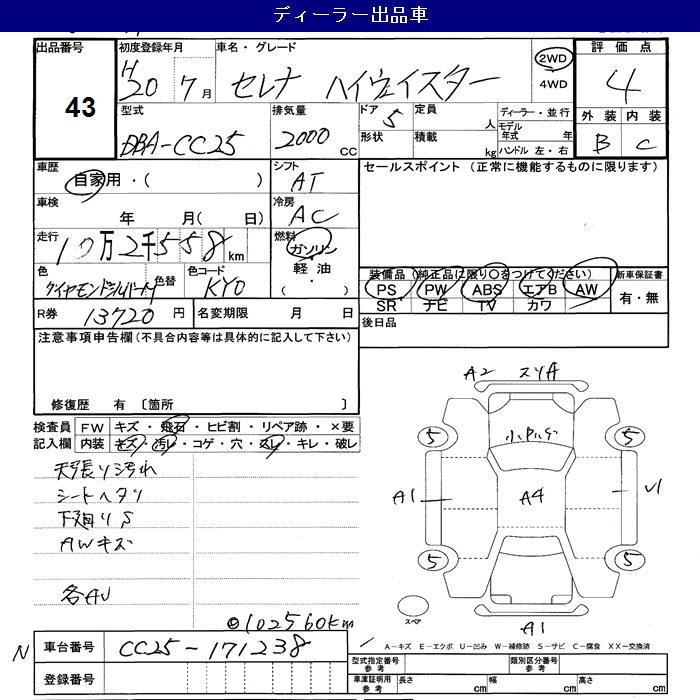 ディーラー出品車
出品番号 43
初度登録年月 H20 7月
車名・グレード セレナ ハイウェイスター
2WD
4WD
評価点 4
外装 B 内装 C
型式 DBA-CC25
排気量 2000 CC
ドア 5
形状
定員 人
積載 kg
ディーラー・並行
モデル年式 年
ハンドル 左・右
車歴 自家用・( )
シフト AT
セールスポイント (正常に機能するものに限ります)
車検 年 月( 日)
冷房 AC
走行 10万2千558km
燃料 ガソリン
軽油
( ・ )
色 ダイヤモンドシルバーM
色替
色コード KY0
装備品(純正品に限り○をつけてください)
PS PW ABS エアB AW
SR ナビ TV カワ
新車保証書
有・無
R券 13720円
名変期限 月 日
後日品
注意事項申告欄(不具合内容等は具体的に記入して下さい)
修復歴 有 〔箇所 〕
検査員記入欄
FW キズ・飛石・ヒビ割・リペア跡・×要
内装 キズ・汚レ・コゲ・穴・スレ・キレ・破レ
天張り汚れ
シートヘタリ
下廻りS
AWキズ
各AU
◎102560km
A2 スリA
5 5
小凹
A1 A4 U1
5 5
スペア
A1
N
車台番号 CC25-171238
登録番号
A－キズ E－エクボ U－凹み W－補修跡 S－サビ C－腐食 XX－交換済
型式指定番号 参考
類別区分番号 参考
車庫証明用 参考
長さ cm 幅 cm 高さ cm